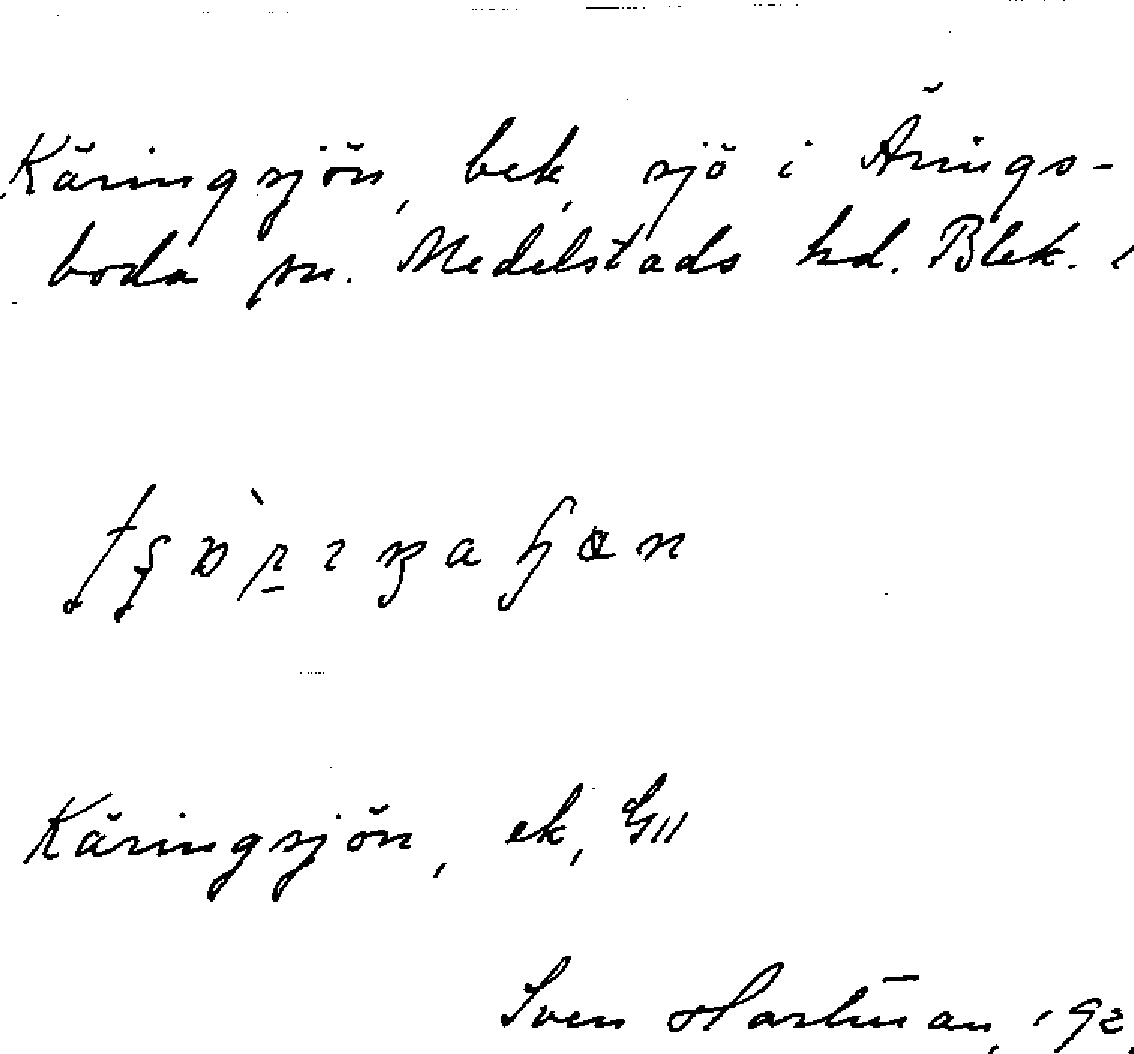 Käringsjön, bek, sjö i Ärings-
boda sn. Medelstads hd. Blek.
Käringsjön, ek, GII
Sven Hartman, 192